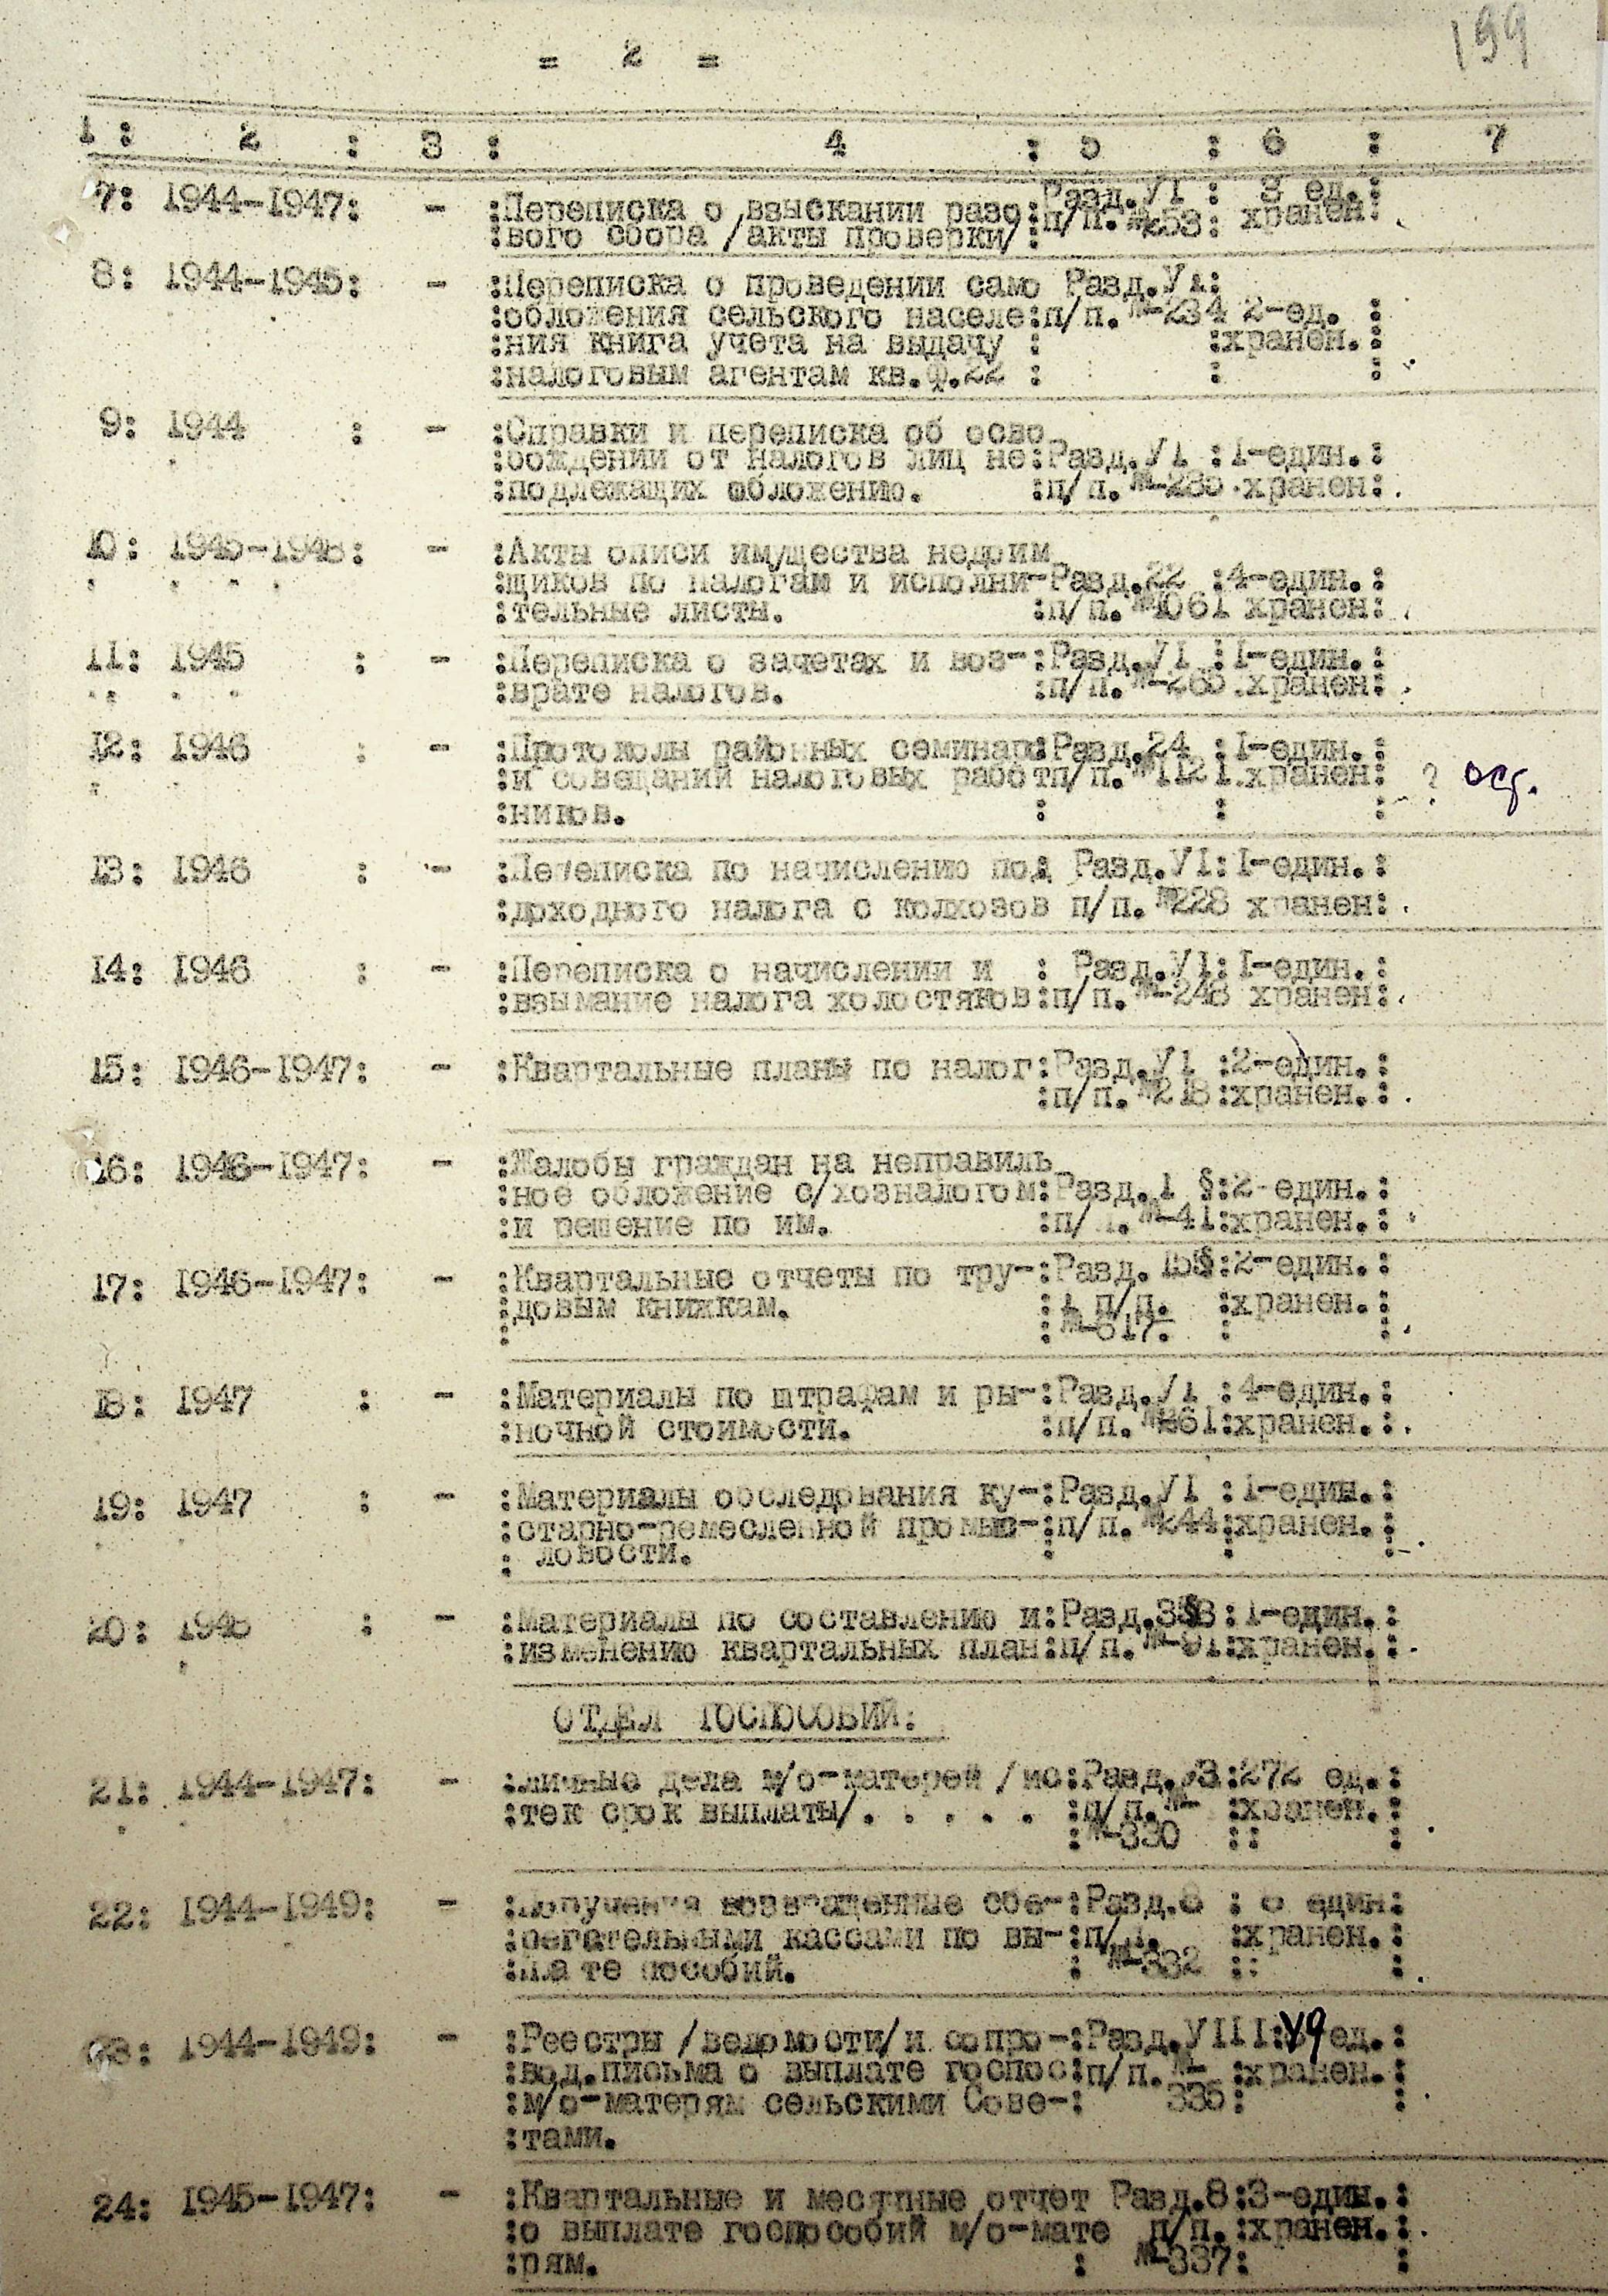 199
= 2 =
1 : 2 : 3 : 4 : 5 : 6 : 7
7: 1944-1947: - :Переписка о взыскании разо:Разд.УІ : 3 ед.:
:вого сбора /акты проверки/:п/п.№253: хранен:
8: 1944-1945: - :Переписка о проведении само Разд.УІ:
:обложения сельского населе:п/п.№-234 2-ед. :
:ния книга учета на выдачу : :хранен.:
:налоговым агентам кв.ф.22 : : :
9: 1944 : - :Справки и переписка об осво
:бождении от налогов лиц не:Разд.УІ :І-един.:
:подлежащих обложению. :п/п.№-235 хранен:
10: 1945-1948: - :Акты описи имущества недоим
:щиков по налогам и исполни-Разд.22 :4-един.:
:тельные листы. :п/п.№1061 хранен:
11: 1945 : - :Переписка о зачетах и воз-:Разд.УІ :І-един.:
:врате налогов. :п/п.№-265 хранен:
12: 1946 : - :Протоколы районных семинаро:Разд.24 :І-един.:
:и совещаний налоговых работп/п.№1121.хранен: ? ос.
:ников. : : :
13: 1946 : - :Пеυеписка по начислению под: Разд.УІ:І-един.:
:доходного налога с колхозов п/п.№228 хранен:
14: 1946 : - :Переписка о начислении и : Разд.УІ:І-един.:
:взымание налога холостяков:п/п.№-248 хранен:
15: 1946-1947: - :Квартальные планы по налог:Разд.УІ :2-един.:
:п/п.№218:хранен.:
16: 1946-1947: - :Жалобы граждан на неправиль
:ное обложение с/хозналогом:Разд.1 §:2-един.:
:и решение по им. :п/п.№-41:хранен.:
17: 1946-1947: - :Квартальные отчеты по тру-:Разд. 15§:2-един.:
:довым книжкам. :1 п/п. :хранен.:
: :№-617: : :
18: 1947 : - :Материалы по штрафам и ры-:Разд.УІ :4-един.:
:ночной стоимости. :п/п.№261:хранен.:
19: 1947 : - :Материалы обследования ку-:Разд.УІ :І-един.:
:старно-ремесленной промыс-:п/п.№244:хранен.:
: ловости. : : :
20: 1946 : - :Материалы по составлению и:Разд.3§3:І-един.:
:изменению квартальных план:п/п.№-91:хранен.:
ОТДЕЛ ГОСПОСОБИЙ:
21: 1944-1947: - :личные дела м/о-матерей /ис:Разд. 3:272 ед.:
:тек срок выплаты/. . . . . :п/п.№- :хранен.:
:№-330 :: :
22: 1944-1949: - :Получения возвращенные сбе-:Разд.8 : един:
:регательными кассами по вы-:п/п. :хранен.:
:плате пособий. : №-332 :: :
23: 1944-1949: - :Реестры /ведомости/и сопро-:Разд.УІІІ: ед.:
:вод.письма о выплате госпос:п/п.№- :хранен.:
:м/о-матерям сельскими Сове-: 335: :
:тами.
24: 1945-1947: - :Квартальные и месячные отчет Разд.8:3-един.:
:о выплате госпособий м/о-мате п/п.:хранен.:
:рям. : №-337: :